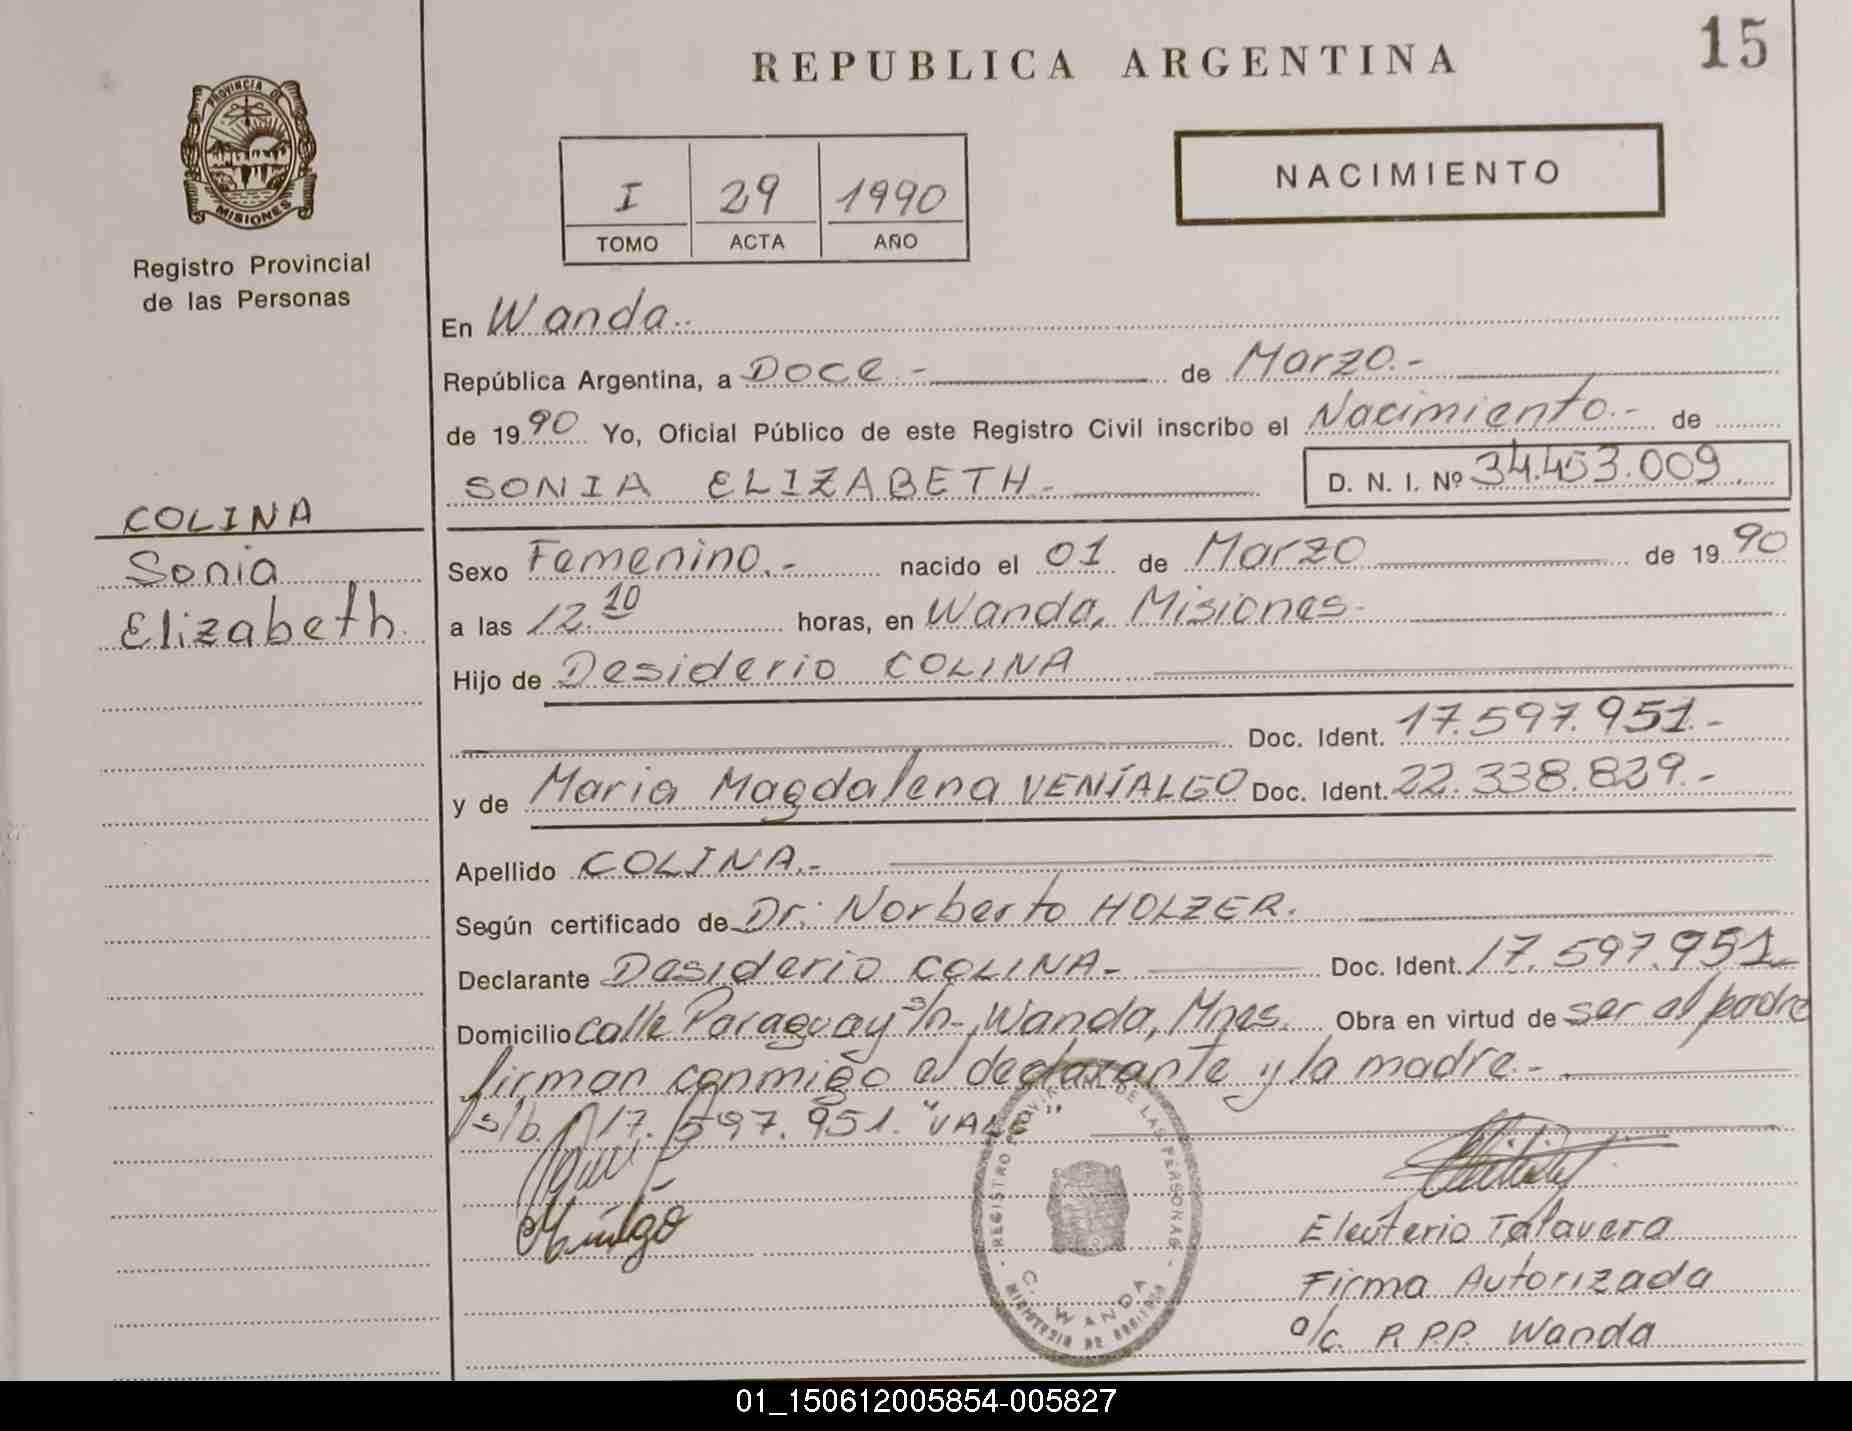 REPUBLICA ARGENTINA
15
PROVINCIA DE
MISIONES
Registro Provincial
de las Personas
I 29 1990
TOMO ACTA AÑO
NACIMIENTO
En Wanda.-
República Argentina, a DOCE.- de Marzo.-
de 1990 Yo, Oficial Público de este Registro Civil inscribo el Nacimiento.- de
SONIA ELIZABETH.- D. N. I. Nº 34.453.009
COLINA
Sonia
Elizabeth
Sexo Femenino.- nacido el 01 de Marzo de 1990
a las 12.10 horas, en Wanda, Misiones.
Hijo de Desiderio COLINA
Doc. Ident. 17.597.951.-
y de Maria Magdalena VENÍALGO Doc. Ident. 22.338.829.-
Apellido COLINA.-
Según certificado de Dr: Norberto HOLZER.
Declarante Desiderio COLINA- Doc. Ident. 17.597.951
Domicilio calle Paraguay s/n-, Wanda, Mnes. Obra en virtud de ser el padre
firman conmigo el declarante y la madre.-
s/b. 17.597.951. "VALE"
REGISTRO PROVINCIAL DE LAS PERSONAS
C. WANDA
Eleuterio Talavera
Firma Autorizada
a/c. R.P.P. Wanda
01_150612005854-005827